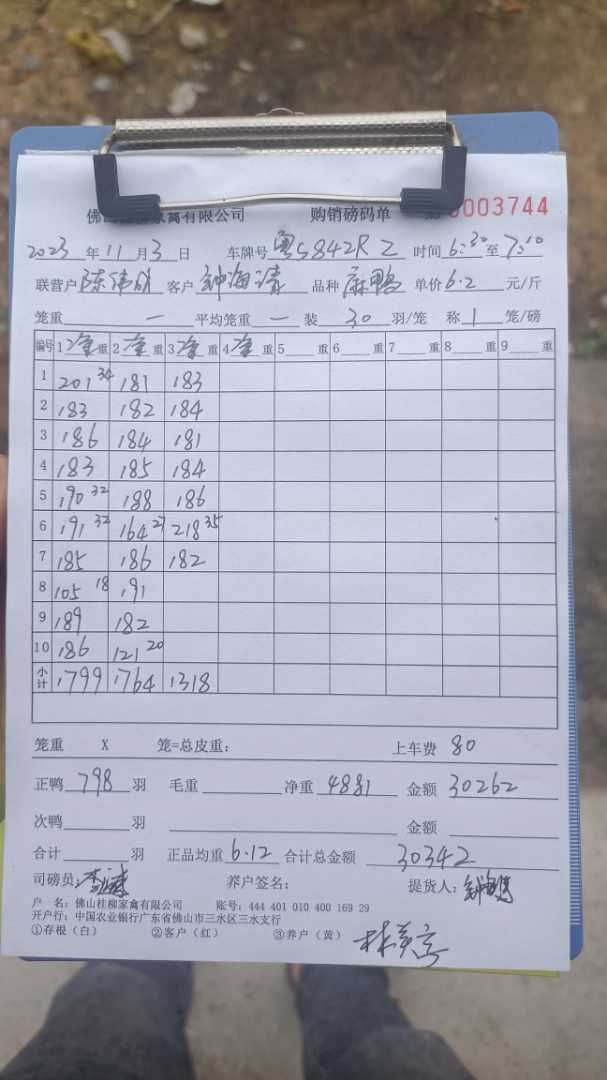 佛山桂柳家禽有限公司 购销磅码单 0003744
2023 年 11 月 3 日 车牌号 粤S842R Z 时间 6:30 至 7:10
联营户 陈伟成 客户 钟海清 品种 麻鸭 单价 6.2 元/斤
笼重 一 平均笼重 一 装 30 羽/笼 称 1 笼/磅
编号 1 净 重 2 净 重 3 净 重 4 净 重 5 重 6 重 7 重 8 重 9 重
1 201 34 181 183
2 183 182 184
3 186 184 181
4 183 185 184
5 190 32 188 186
6 191 32 164 27 218 35
7 185 186 182
8 105 18 191
9 189 182
10 186 121 20
小计 1799 1764 1318
笼重 X 笼=总皮重: 上车费 80
正鸭 798 羽 毛重 净重 4881 金额 30262
次鸭 羽 金额
合计 羽 正品均重 6.12 合计总金额 30342
司磅员: 养户签名: 提货人:
户 名: 佛山桂柳家禽有限公司 账号: 444 401 010 400 169 29
开户行: 中国农业银行广东省佛山市三水区三水支行
①存根（白） ②客户（红） ③养户（黄）